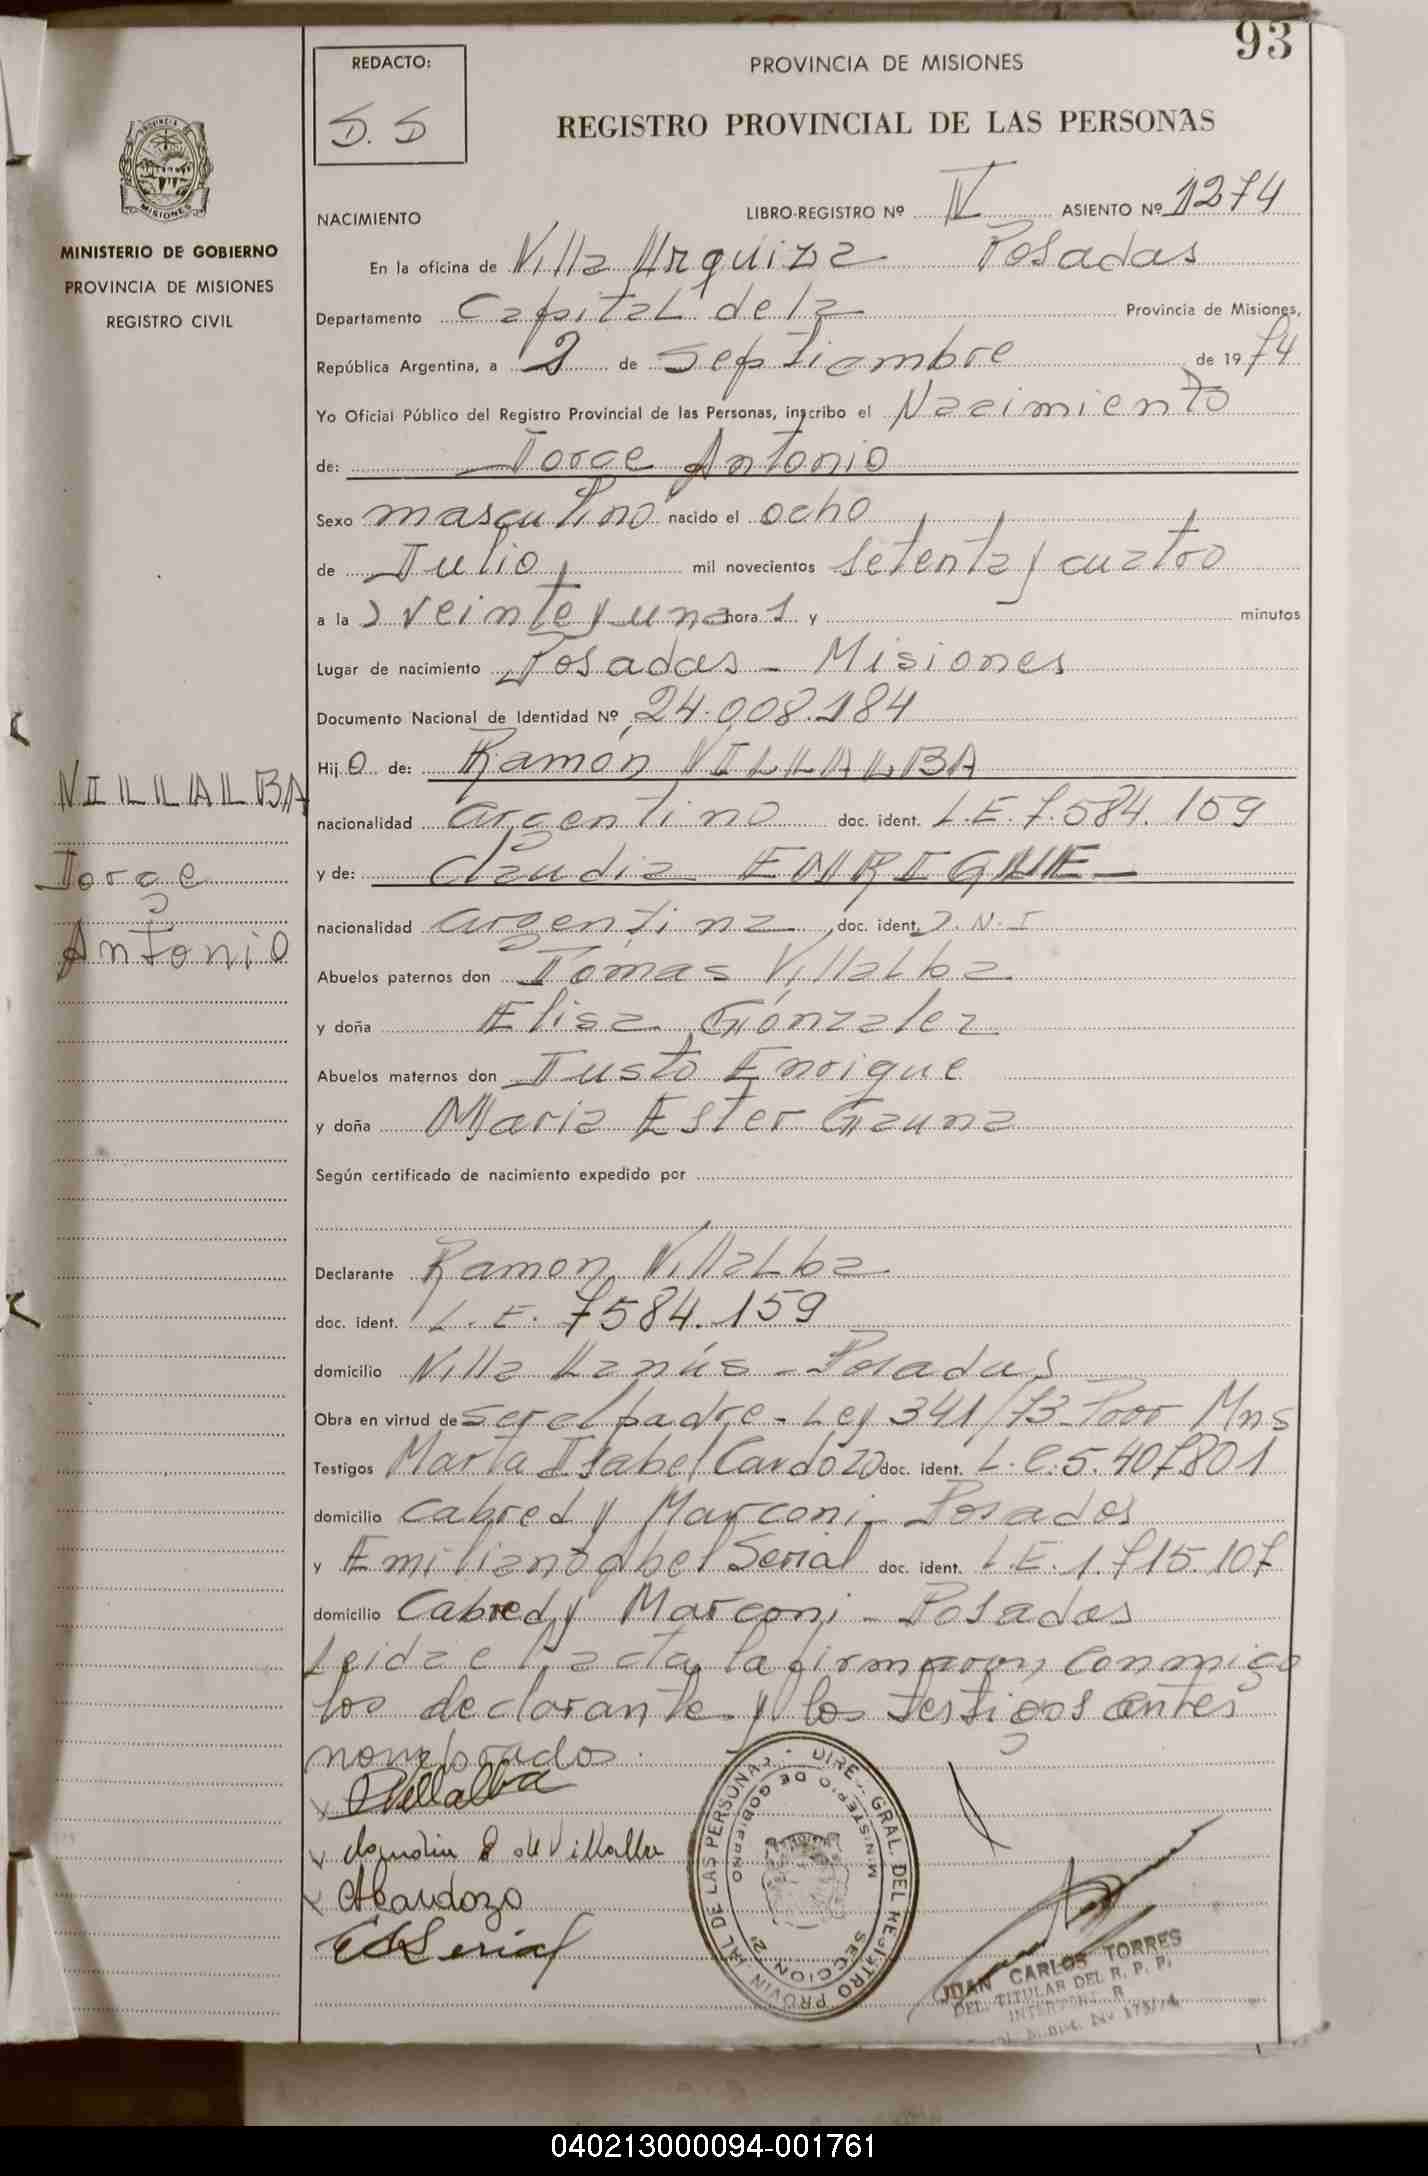 93
REDACTO:
S. S
PROVINCIA DE MISIONES
REGISTRO PROVINCIAL DE LAS PERSONAS
PROVINCIA DE
MISIONES
MINISTERIO DE GOBIERNO
PROVINCIA DE MISIONES
REGISTRO CIVIL
NACIMIENTO LIBRO-REGISTRO Nº IV ASIENTO Nº 1274
En la oficina de Villa Urquiza Posadas
Departamento Capital de la Provincia de Misiones,
República Argentina, a 2 de Septiembre de 1974
Yo Oficial Público del Registro Provincial de las Personas, inscribo el Nacimiento
de: Jorge Antonio
Sexo masculino nacido el ocho
de Julio mil novecientos setenta y cuatro
a la s veinte y una hora s y minutos
Lugar de nacimiento Posadas - Misiones
Documento Nacional de Identidad Nº 24.008.184
Hijo de: Ramón VILLALBA
nacionalidad argentino doc. ident. L.E. 7.584.159
y de: Claudia ENRIQUE
nacionalidad argentina doc. ident. D.N.I
Abuelos paternos don Tomas Villalba
y doña Elisa Gónzalez
Abuelos maternos don Justo Enrique
y doña Maria Ester Gauna
Según certificado de nacimiento expedido por
Declarante Ramon Villalba
doc. ident. L.E. 7584.159
domicilio Villa Lanús - Posadas
Obra en virtud de ser el padre - Ley 341/73 - Poor Mns
Testigos Marta Isabel Cardozo doc. ident. L.C. 5.407801
domicilio Cabred y Marconi - Posadas
y Emiliano abel Serial doc. ident. L.E. 1.715.107
domicilio Cabred y Marconi - Posadas
Leida el acta, la firmaron, conmigo
los declarante y los testigos antes
nombrados.
VILLALBA
Jorge
Antonio
RVillalba
Claudia E de Villalba
MCardozo
EASerial
DIREC. GRAL. DEL REGISTRO PROVINCIAL DE LAS PERSONAS
MINISTERIO DE GOBIERNO
SECCION 2ª
JUAN CARLOS TORRES
DEL. TITULAR DEL R. P. P.
040213000094-001761